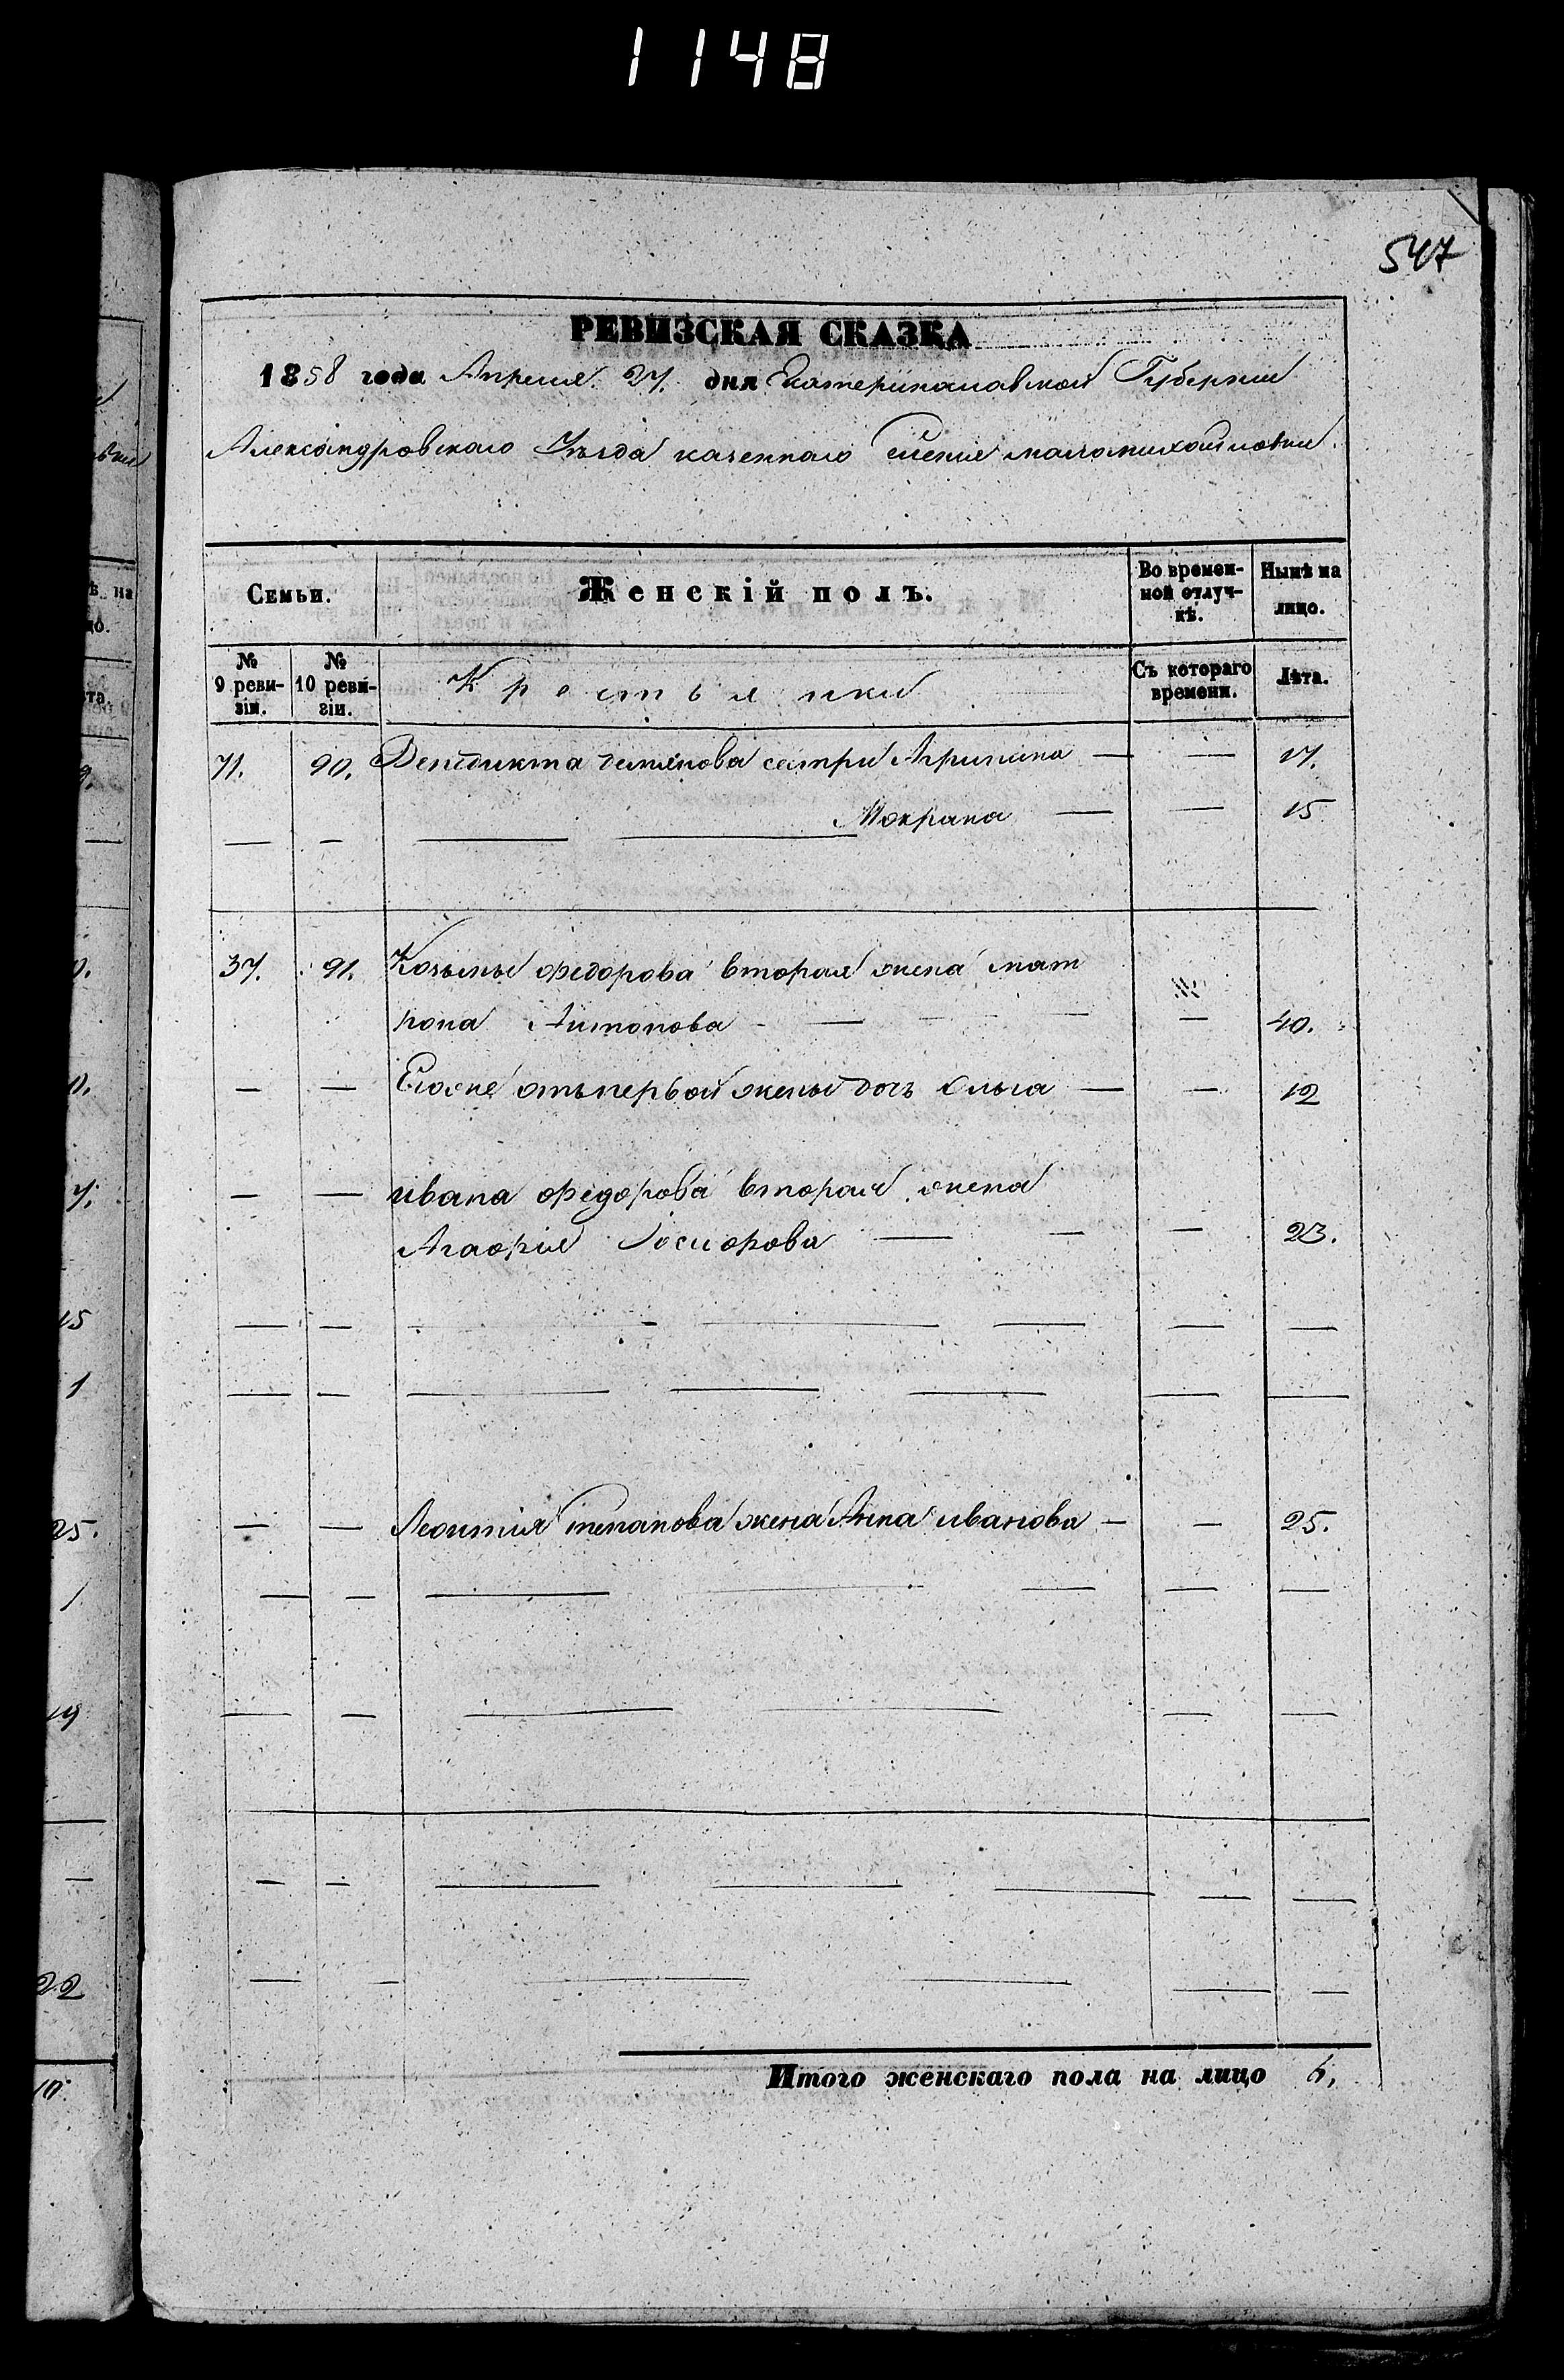 1148
547
РЕВИЗСКАЯ СКАЗКА
1858 года Апреля 27. дня Екатериналавской Губернии
Александровскаго Уѣзда казеннаго Маломихайловки
Семьи.
Женскій полъ.
Во времен-
ной отлуч-
кѣ.
Нынѣ на
лицо.
№
9 реви-
зіи.
№
10 реви-
зіи.
Крестьянки
Съ котораго
времени.
Лѣта.
71. 90. Венедикта демянова сестри Агрипина — — 17.
— — Мокрана — — 15
37. 91. Козьмы федорова вторая жена мат
рона Антонова — — 40.
— — Егоже отъпервой жены дочь Ольга — — 12
— — ивана федорова вторая жена
Агафия — — 23.
— — Леонтия степанова жена Анна иванова — — 25.
Итого женскаго пола на лицо 6.